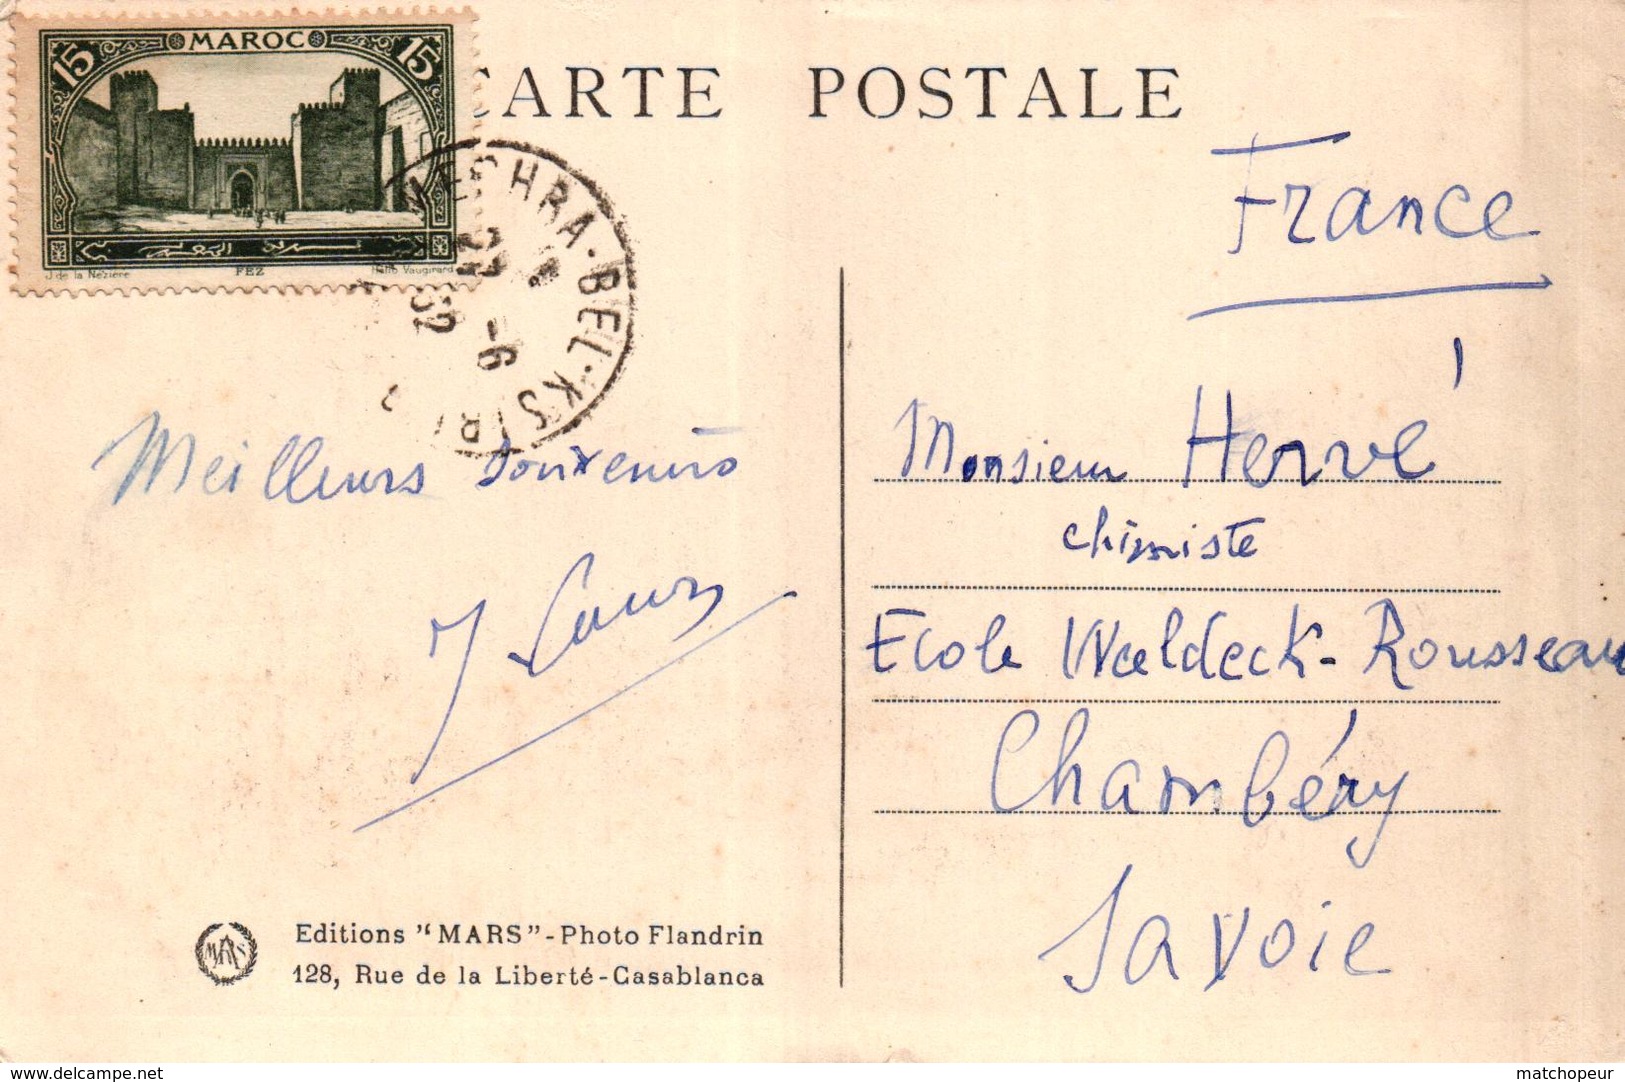 MAROC
15 15
J. de la Nézière FEZ Hélio Vaugirard
CARTE POSTALE
MECHRA-BEL-KSIRI
27 -6
32
France
Meilleurs souvenirs
Monsieur Hervé
chimiste
Ecole Waldeck-Rousseau
Chambéry
Savoie
MARS
Editions "MARS" - Photo Flandrin
128, Rue de la Liberté - Casablanca
www.delcampe.net
matchopeur